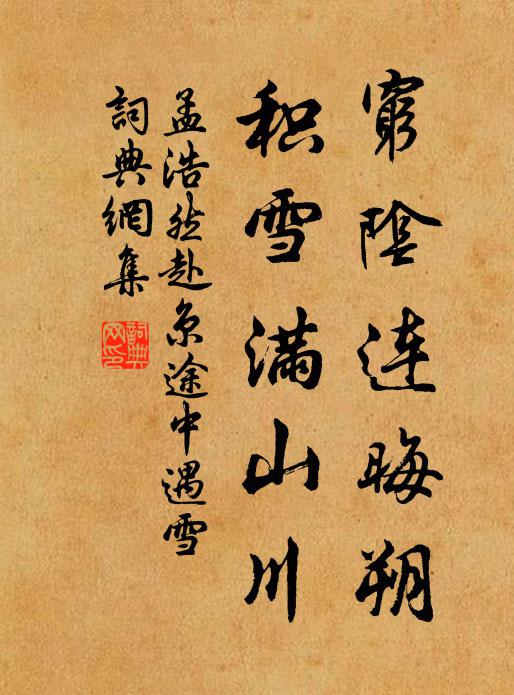 窮陰連晦朔
积雪滿山川
孟浩然赴京途中遇雪
詞典網集
詞典网印